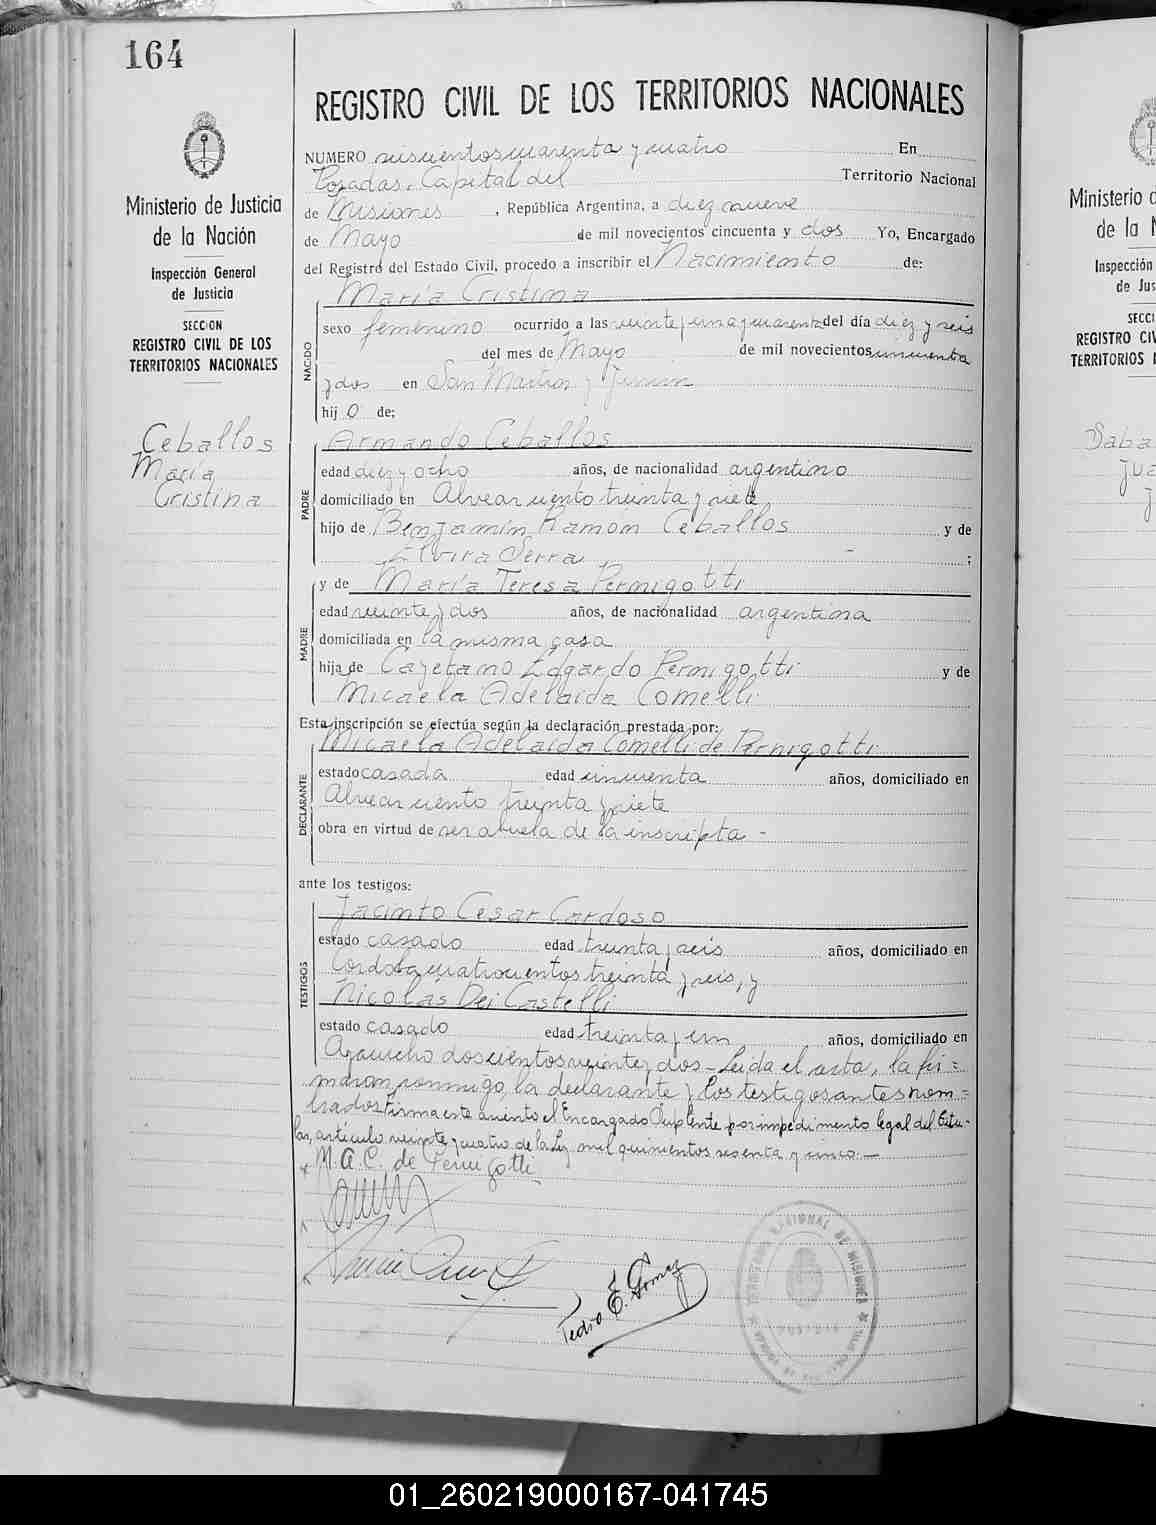 164
Ministerio de Justicia
de la Nación
Inspección General
de Justicia
SECCION
REGISTRO CIVIL DE LOS
TERRITORIOS NACIONALES
Ceballos
María
Cristina
REGISTRO CIVIL DE LOS TERRITORIOS NACIONALES
NUMERO seiscientos cuarenta y cuatro En
Posadas, Capital del Territorio Nacional
de Misiones, República Argentina, a diez nueve
de Mayo de mil novecientos cincuenta y dos Yo, Encargado
del Registro del Estado Civil, procedo a inscribir el Nacimiento de:
María Cristina
NACIDO
sexo femenino ocurrido a las veinte y una y cuarenta del día diez y seis
del mes de Mayo de mil novecientos cincuenta
y dos en San Martín y Junin
hij o de;
PADRE
Armando Ceballos
edad diez y ocho años, de nacionalidad argentino
domiciliado en Alvear ciento treinta y siete
hijo de Benjamín Ramon Ceballos y de
Elvira Serra ;
MADRE
y de María Teresa Pernigotti
edad veinte y dos años, de nacionalidad argentina
domiciliada en la misma casa
hija de Cayetano Edgardo Pernigotti y de
Micaela Adelaida Comelli
Esta inscripción se efectúa según la declaración prestada por:
DECLARANTE
Micaela Adelaida Comelli de Pernigotti
estado casada edad cincuenta años, domiciliado en
Alvear ciento treinta y siete
obra en virtud de ser abuela de la inscripta -
ante los testigos:
TESTIGOS
Jacinto Cesar Cardoso
estado casado edad treinta y seis años, domiciliado en
Cordoba cuatrocientos treinta y seis, y
Nicolás Dei Castelli
estado casado edad treinta y un años, domiciliado en
Ayacucho doscientos veinte y dos - Leida el acta, la fir=
maron conmigo, la declarante y los testigos antes nom=
brados firma este asiento el Encargado Suplente por impedimento legal del titu-
lar, artículo veinte y cuatro de la Ley mil quinientos sesenta y cinco. —
M. A. C. de Pernigotti
Pedro E. Gomez
TERRITORIO NACIONAL DE MISIONES
POSADAS
Ministerio d
de la N
Inspecció
de Jus
SECCI
REGISTRO CIV
TERRITORIOS N
Saba
Jua
01_260219000167-041745